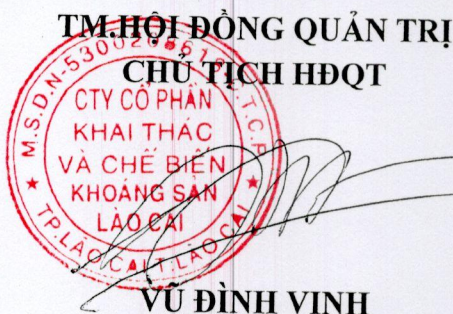 TM.HỘI ĐỒNG QUẢN TRỊ
CHỦ TỊCH HĐQT
CTY CỔ PHẦN
KHAI THÁC
VÀ CHẾ BIẾN
KHOÁNG SẢN
LÀO CAI
TP.LÀO CAI T.LÀO CAI
VŨ ĐÌNH VINH